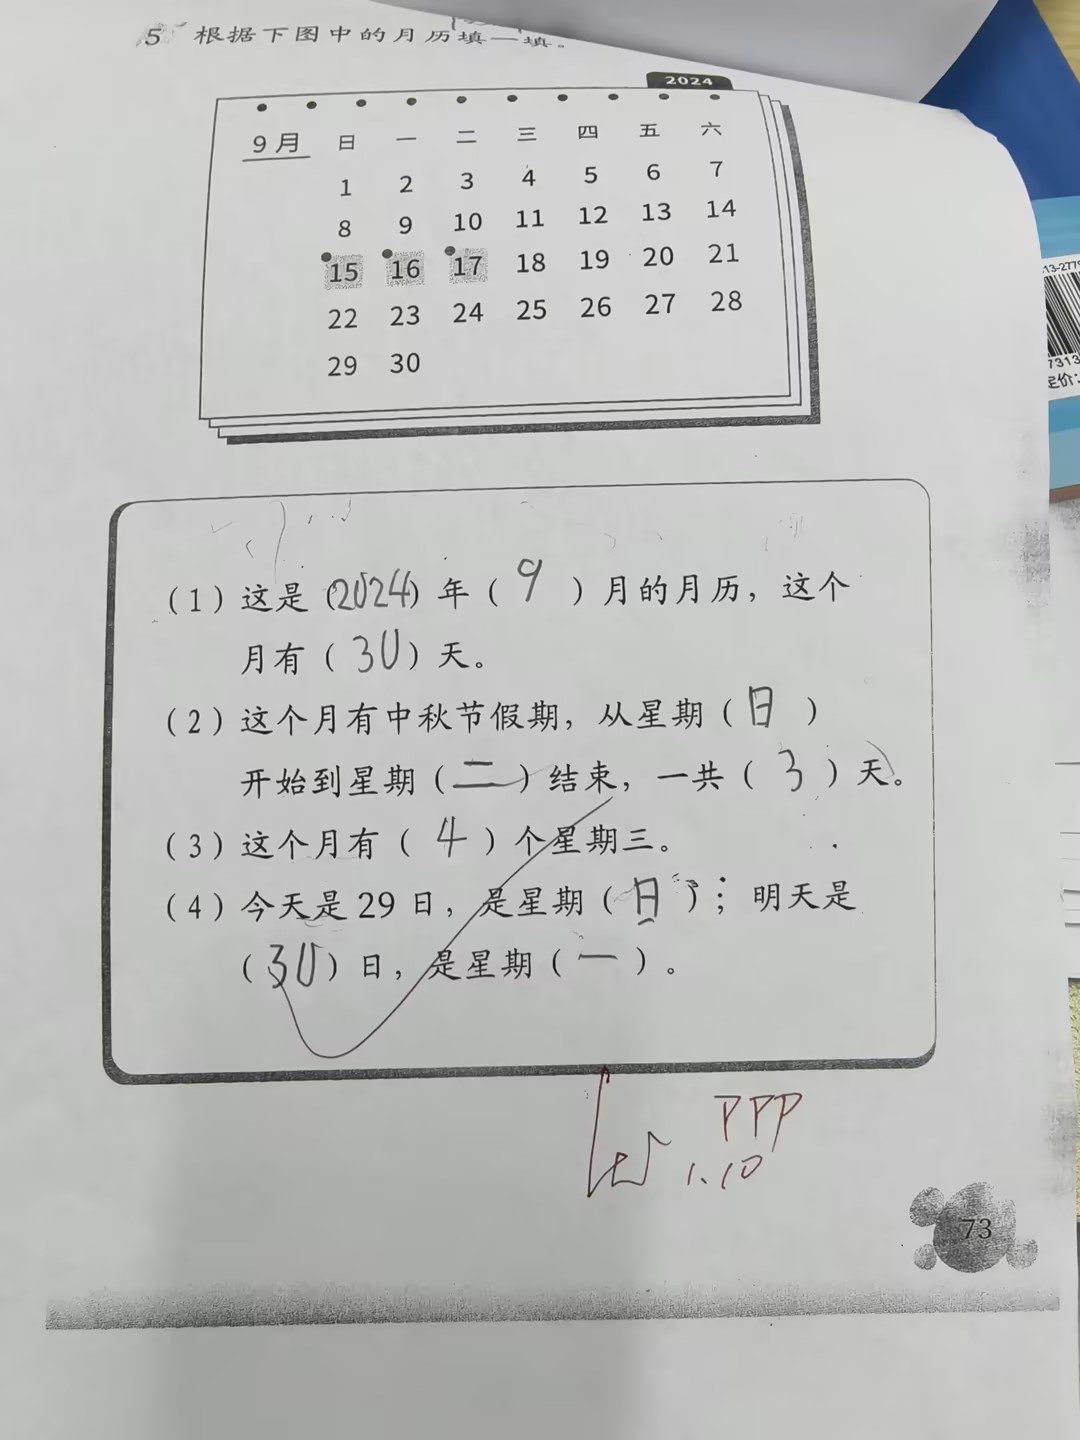 5 根据下图中的月历填一填。
2024
9月 日 一 二 三 四 五 六
1 2 3 4 5 6 7
8 9 10 11 12 13 14
15 16 17 18 19 20 21
22 23 24 25 26 27 28
29 30
（1）这是（2024）年（9）月的月历，这个
月有（30）天。
（2）这个月有中秋节假期，从星期（日）
开始到星期（二）结束，一共（3）天。
（3）这个月有（4）个星期三。
（4）今天是29日，是星期（日）；明天是
（30）日，是星期（一）。
PPP
1.10
73